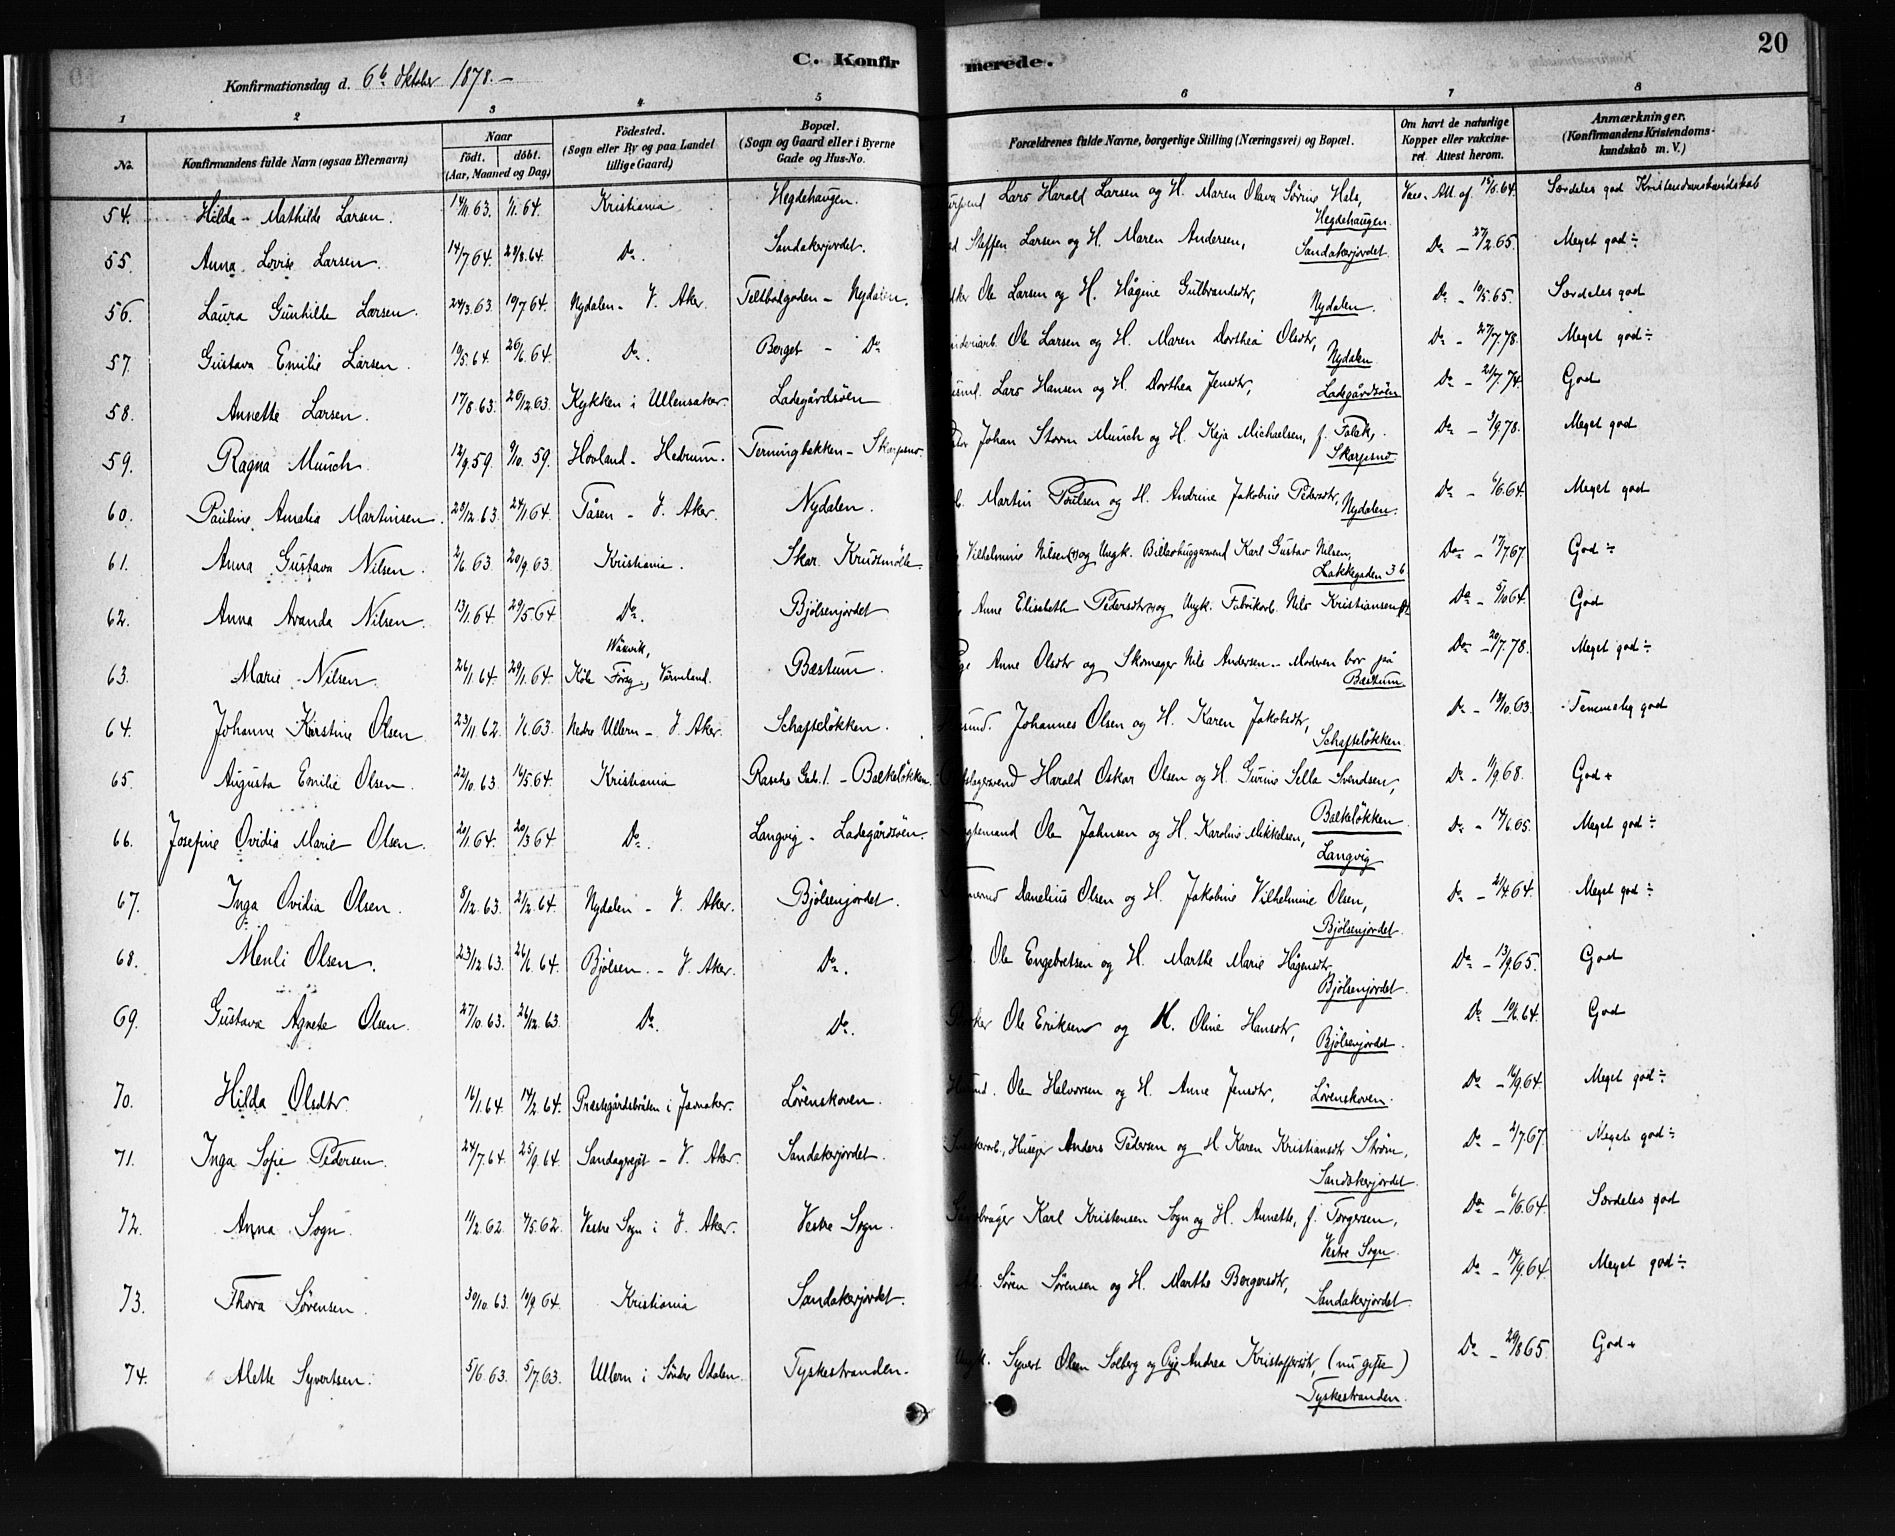 20
C. Konfirmerede.
Konfirmationsdag d. 6te Oktober 1878.-
1 2 3 4 5 6 7 8
No. Konfirmandens fulde Navn (ogsaa Efternavn) Naar födt. döbt. (Aar, Maaned og Dag) Födested. (Sogn eller By og paa Landet tillige Gaard) Bopæl. (Sogn og Gaard eller i Byerne Gade og Hus-No. Forældrenes fulde Navne, borgerlige Stilling (Næringsvei) og Bopæl. Om havt de naturlige Kopper eller vakcineret. Attest herom. Anmærkninger. (Konfirmandens Kristendomskundskab m. V.)
54. Hilda Mathilde Larsen. 14/11 63. 1/1. 64. Kristiania Hegdehaugen. Lars Harald Larsen og H. Maren Olava Sørine Hals, Hegdehaugen. Vacc. Att. af 15/6. 64. Særdeles god Kristendomskundskab
55. Anna Lovise Larsen. 14/7 64. 28/8. 64. Do. Sandakerjordet. Steffen Larsen og H. Maren Andersen, Sandakerjordet. Do - 27/2 65. Meget god ÷
56. Laura Gunhilde Larsen. 24/3. 63. 10/7 64. Nydalen - V. Aker. Teltbolgaden - Nydalen. Ole Larsen og H. Hågine Gulbrandsdtr, Nydalen. Do - 10/5. 65. Særdeles god
57. Gustava Emilie Larsen. 10/5. 64. 26/6. 64. Do. Berget - Do Ole Larsen og H. Maren Dorthea Olsdtr, Nydalen Do - 27/7. 78. Meget god ÷
58. Annette Larsen. 17/8. 63. 20/12. 63. Kykken i Ullensaker. Ladegårdsøen Lars Hansen og H. Dorthea Jensdtr, Ladegårdsøen Do - 21/7. 74. God
59. Ragna Munch. 12/9. 59. 9/10. 59. Hovland - Hedrum. Terningbekken - Skarpsno Johan Storm Munch og H. Keja Michaelsen, f. Falck, Skarpsno Do - 3/9. 78. Meget god
60. Pauline Amalia Martinsen. 20/12. 63. 24/1 64. Tåsen - V. Aker. Nydalen. Martin Poulsen og H. Andrine Jakobine Pedersdtr, Nydalen. Do - 6/6. 64. Meget god
61. Anna Gustava Nilsen. 2/6. 63. 20/9. 63. Kristiania. Skar Krudtmølle. Vilhelmine Nilsen og Ungk. Billedhuggersvend Karl Gustav Nilsen, Lakkegaden 36 Do - 17/7 67. God ÷
62. Anna Avanda Nilsen. 13/1. 64. 29/5. 64 Do. Bjølsenjordet Anne Elisabeth Pedersdtr og Ungk. Fabrikarb. Nils Kristiansen Do - 5/10 64. God
63. Marie Nilsen. 26/1. 64. 29/1. 64. Köla Försg, Värmland. Bæstum. Anne Olsdtr og Skomager Nils Andersen - Moderen bor på Bæstum Do - 20/7. 78. Meget god ÷
64. Johanne Kirstine Olsen 23/11. 62. 1/1. 63. Nedre Ullern - V. Aker. Schafteløkken. Johannes Olsen og H. Karen Jakobsdtr, Schafteløkken. Do - 18/10. 63. Temmelig god
65. Augusta Emilie Olsen. 22/10. 63. 16/5. 64. Kristiania Rasche Gd. 1. - Balkeløkken. Harald Oskar Olsen og H. Gurine Sella Svendsen, Balkeløkken. Do - 11/9 68. God +
66. Josefine Ovidia Marie Olsen. 20/1. 64. 20/3 64. Do. Langvig - Ladegårdsøen. Ole Johnsen og H. Karoline Mikkelsen, Langvig Do - 14/6. 65. Meget god ÷
67. Inga Ovidia Olsen. 8/12. 63. 21/2. 64. Nydalen - V. Aker. Bjølsenjordet. Danelius Olsen og H. Jakobine Vilhelmine Olsen, Bjølsenjordet. Do - 21/4. 64. Meget god ÷
68. Menli Olsen. 23/12. 63. 26/6. 64. Bjølsen. - V. Aker. Do. Ole Engebretsen og H. Marthe Marie Hågensdtr Bjølsenjordet. Do - 13/9. 65. God
69. Gustava Agnete Olsen. 27/10. 63. 26/12. 63. Do. Do. Ole Eriksen og H. Oline Hansdtr, Bjølsenjordet. Do - 10/6. 64. God
70. Hilda Olsdtr. 16/1. 64. 14/2. 64. Præstegårdsbråten i Jævnaker. Lørenskoven. Ole Halvorsen og H. Anne Jensdtr, Lørenskoven. Do - 16/9. 64. Meget god ÷
71. Inga Sofie Pedersen. 24/7. 64. 25/9. 64. Sandagerejet - V. Aker. Sandakerjordet. Huseier Anders Pedersen og H. Karen Kristiansdtr Strøm, Sandakerjordet. Do - 2/7. 67. Meget god ÷
72. Anna Sogn. 11/2. 62. 4/5. 62. Vestre Sogn i V. Aker. Vestre Sogn. Gårdbruger Karl Kristensen Sogn og H. Annette, f. Torgersen, Vestre Sogn. Do - 6/6. 64. Særdeles god
73. Thora Sørensen. 30/10. 63. 10/9. 64. Kristiania Sandakerjordet. Søren Sørensen og H. Marthe Bergersdtr, Sandakerjordet. Do - 17/9. 64. Meget god ÷
74. Alette Syvertsen. 5/6. 63. 5/7. 63. Ullern i Søndre Odalen. Tyskestranden. Ungk. Syvert Olsen Solberg og Pige Andrea Kristoffersdtr, (nu gifte) Tyskestranden. Do - 29/8 65. God +